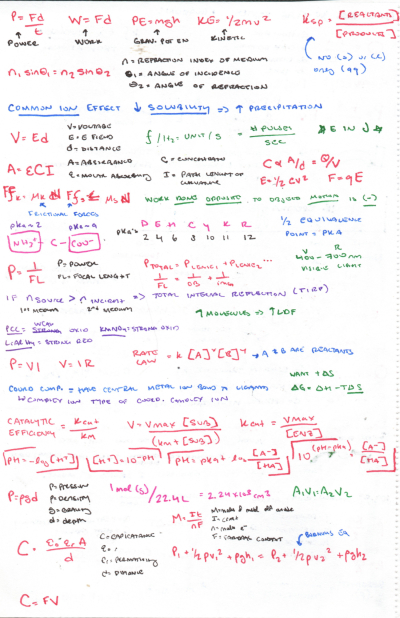 P = Fd/t   W = Fd   PE = mgh   KE = 1/2 mv²   Ksp = [REACTANT]/[PRODUCT]
POWER   WORK   GRAV. POTEN   KINETIC
NO (s) or (l)
only (aq)
n₁ sinθ₁ = n₂ sinθ₂
n = REFRACTION INDEX OF MEDIUM
θ₁ = ANGLE OF INCIDENCE
θ₂ = ANGLE OF REFRACTION
COMMON ION EFFECT ↓ SOLUBILITY => ↑ PRECIPITATION
V = Ed
V = VOLTAGE
E = E FIELD
d = DISTANCE
f / Hz = UNIT/S = # PULSES / SEC
E IN J
A = ECI
A = ABSORBANCE
C = CONCENTRATION
I = PATH LENGTH OF
C ∝ A/d = Q/V
E = 1/2 CV²   F = qE
FRICTIONAL FORCES
WORK DONE OPPOSED TO OBJECTS MOTION IS (-)
pka ≈ 2   pka ≈ 9
NH₃⁺ - C - COO⁻
pka's   D E H C Y K R
2 4 6 8 10 11 12
1/2 EQUIVALENCE
POINT = PKA
P = 1/FL
P = POWER
FL = FOCAL LENGTH
PTOTAL = PLENS1 + PLENS2 ...
V   R
400 - 700 nm
VISIBLE LIGHT
IF n SOURCE > n INCIDENT => TOTAL INTERNAL REFLECTION (TIR)
1ST MEDIUM   2ND MEDIUM
↑ MOLECULES => ↑ LDF
PCC = WEAK OXID   KMNO₄ = STRONG OXID
LIALH₄ = STRONG RED
P = VI   V = IR   RATE LAW = k [A]ˣ [B]ʸ → A & B ARE REACTANTS
WANT +ΔS
ΔG = ΔH - TΔS
COORD COMP. = HAVE CENTRAL METAL ION BOND TO LIGANDS
CATALYTIC EFFICIENCY = kcat/km   V = Vmax [SUB] / (km + [SUB])   kcat = Vmax/[ENZ]
PH = -log [H⁺]   [H⁺] = 10^-PH   PH = pka + log [A⁻]/[HA]   10^(pH-pka) = [A⁻]/[HA]
P = ρgd
P = PRESSURE
ρ = DENSITY
g = GRAVITY
d = DEPTH
1 mol (g) / 22.4L = 2.24 x10⁴ cm³
A₁V₁ = A₂V₂
M = It/nF
n = mol e⁻
F = FARADAY CONSTANT
C = ε₀ εᵣ A / d
C = CAPACITANCE
d = DISTANCE
P₁ + 1/2 ρv₁² + ρgh₁ = P₂ + 1/2 ρv₂² + ρgh₂
C = FV